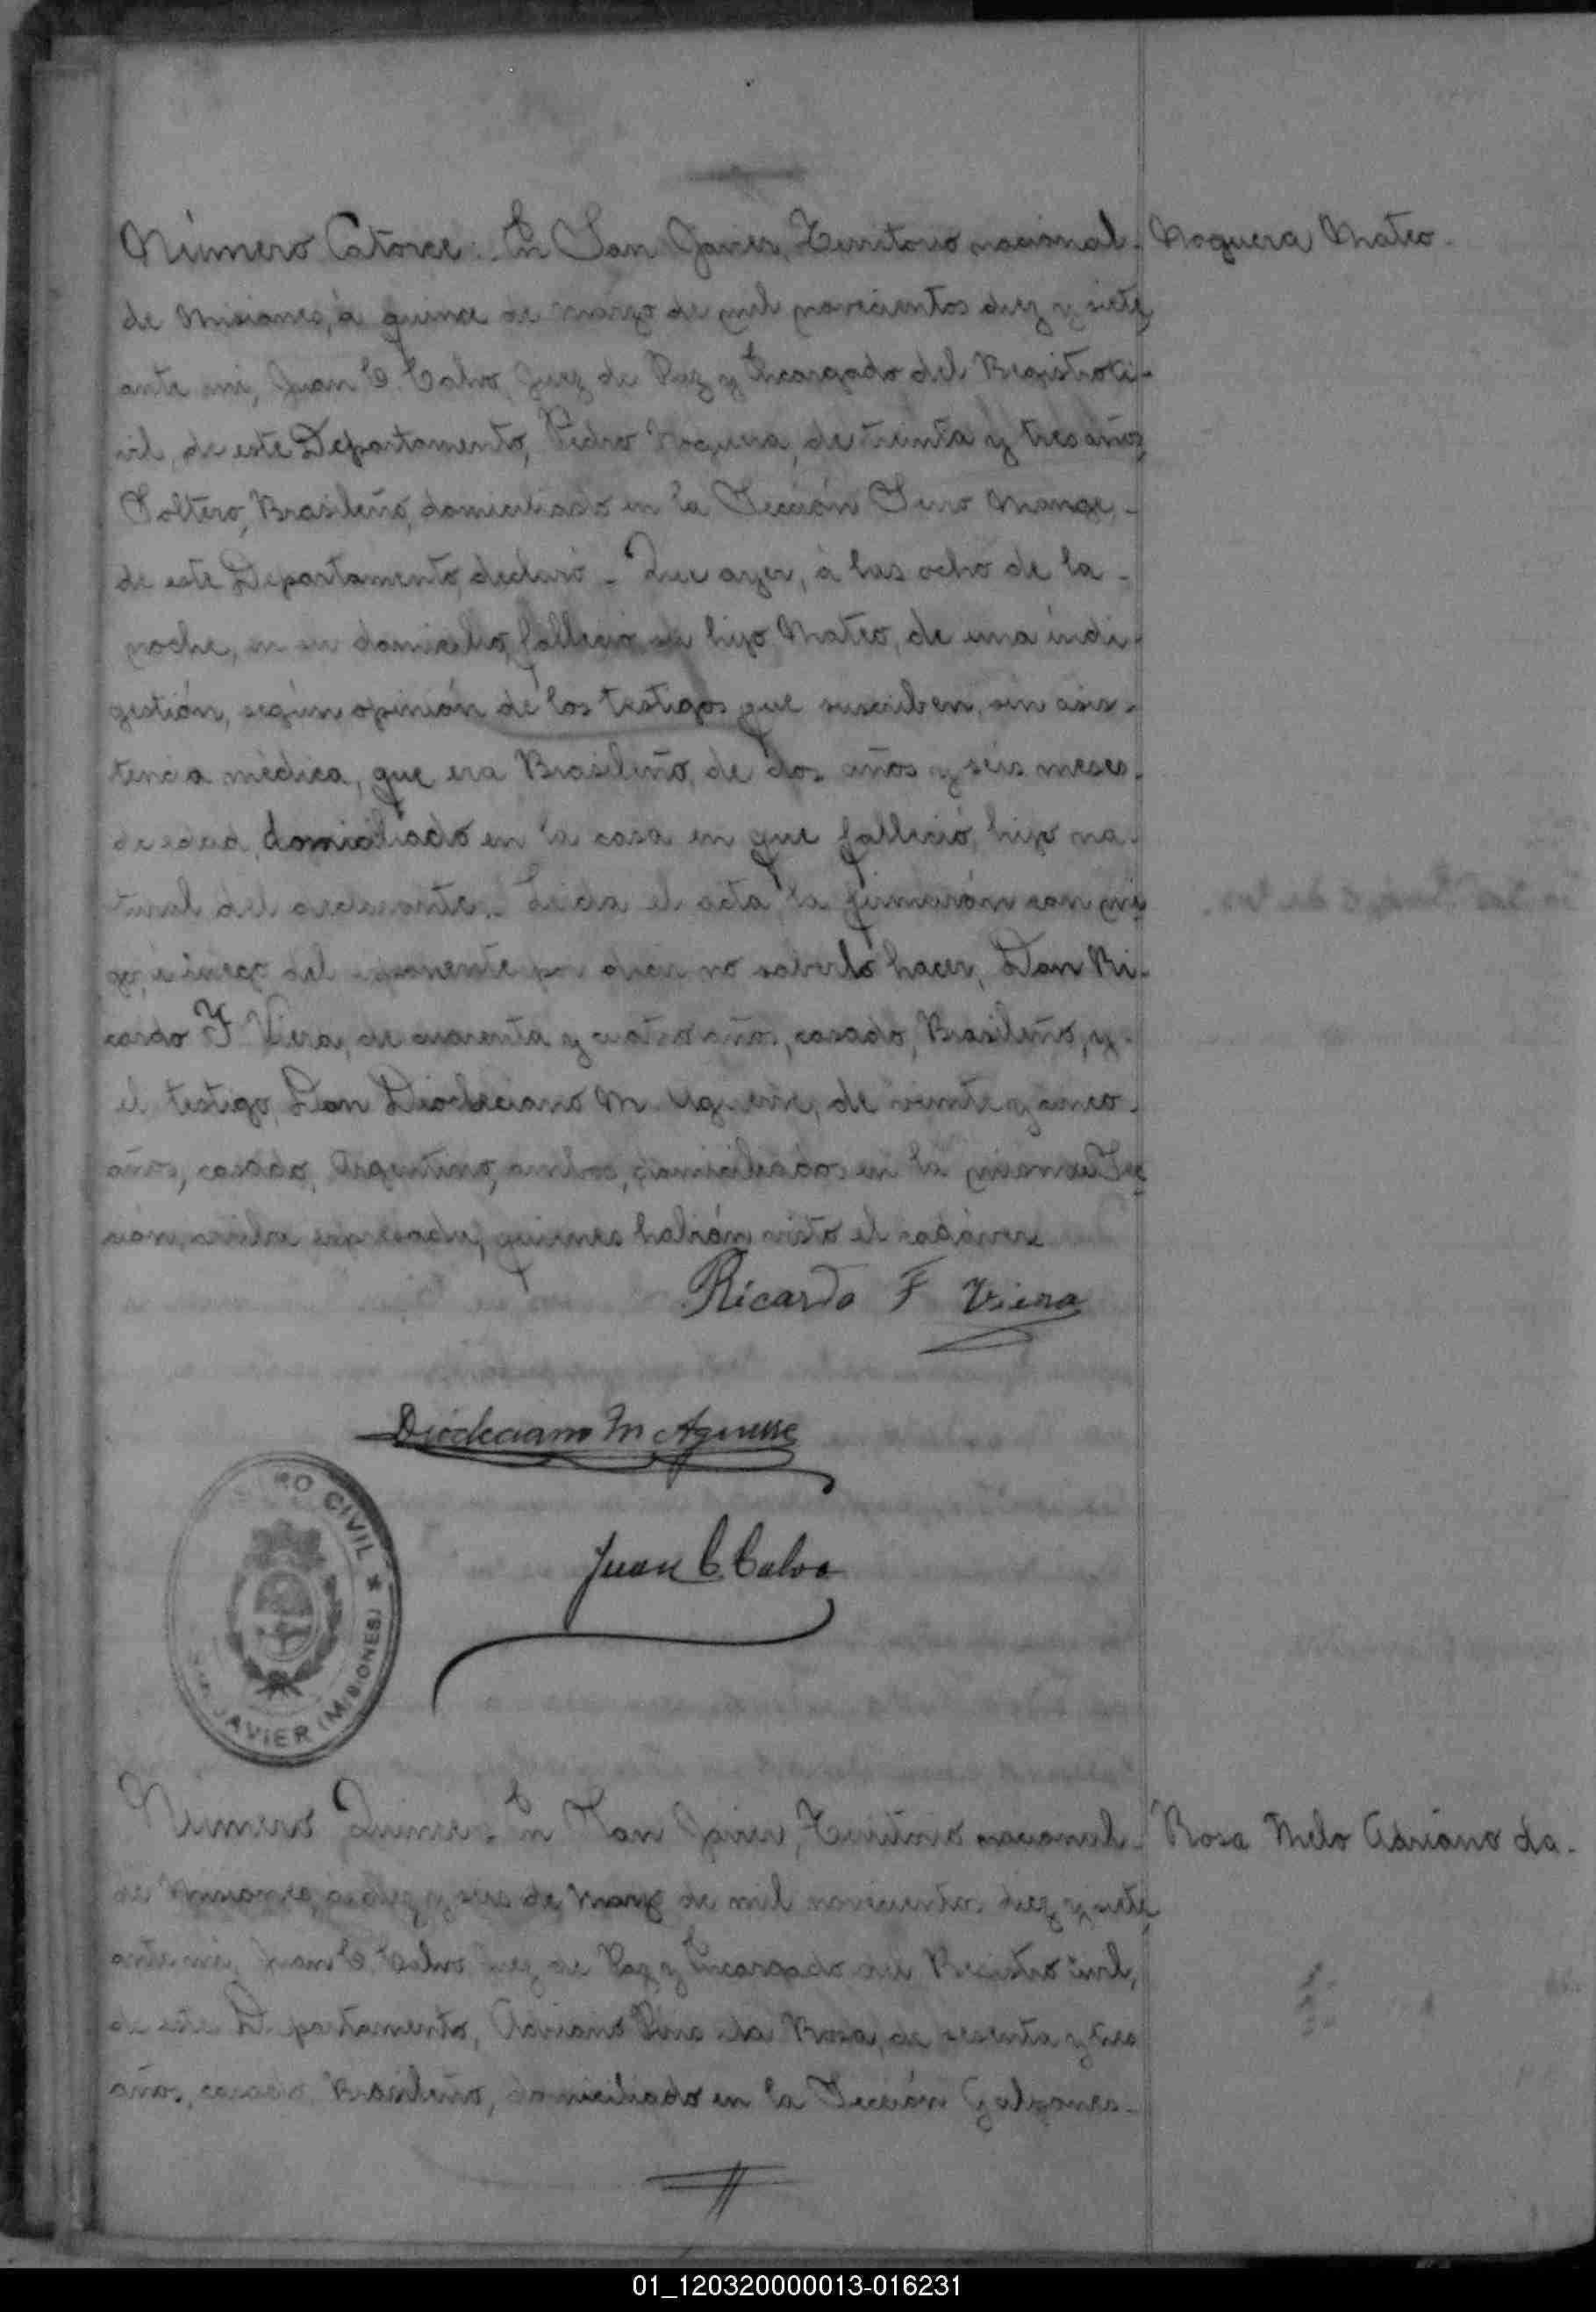 Número Catorce. En San Javier, Territorio nacional- Noguera Mateo.
de Misiones, á quince de marzo de mil novecientos diez y siete,
ante mi, Juan C. Calvo, Juez de Paz y Encargado del Registro Ci-
vil, de este Departamento, Pedro Noguera, de treinta y tres años,
Soltero, Brasileño, domiciliado en la Sección Serro Mange,-
de este Departamento, declaró - Que ayer, á las ocho de la -
noche, en su domicilio, falleció su hijo Mateo, de una indi-
gestión, según opinión de los testigos que suscriben, sin asis-
tencia médica, que era Brasileño, de dos años y seis meses-
de edad, domiciliado en la casa en que falleció, hijo na-
tural del declarante. Leida el acta, la firmarón con mi
go, á ruego del exponente por decir no saberlo hacer, Don Ri-
cardo F. Viera, de cuarenta y cuatro años, casado, Brasileño, y-
el testigo, Don Diocleciano M. Aguirre, de veinte y cinco-
años, casado, Argentino, ambos, domiciliados en la misma Sec
ción, arriba expresada, quienes habián visto el cadáver
Ricardo F Viera
Diocleciano M Aguirre
Juan C. Calvo
RO CIVIL
JAVIER (MISIONES)
Número Quince. En San Javier, Territorio nacional- Rosa Melo Adriano da-
de Misiones, a diez y seis de Marzo de mil novecientos diez y siete,
ante mi, Juan C. Calvo Juez de Paz y Encargado del Registro Civil,
de este Departamento, Adriano da Rosa, de sesenta y tres
años, casado, Brasileño, domiciliado en la Sección
01_120320000013-016231